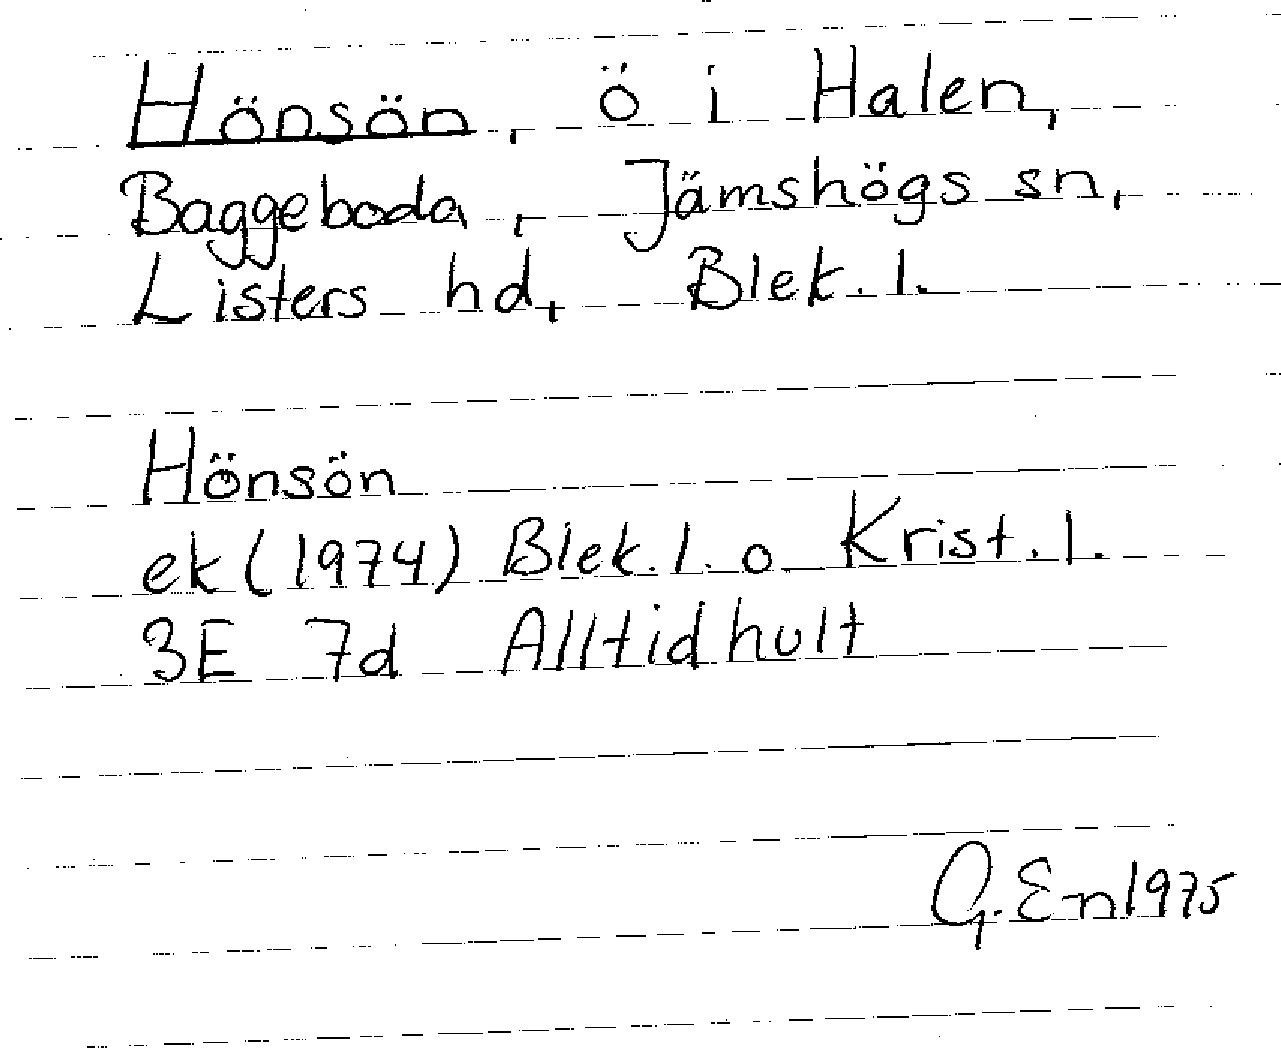 Hönsön, ö i Halen,
Baggeboda, Jämshögs sn,
Listers hd, Blek. l.
Hönsön
ek (1974) Blek. l. o Krist. l.
3E 7d Alltidhult
G. En 1975